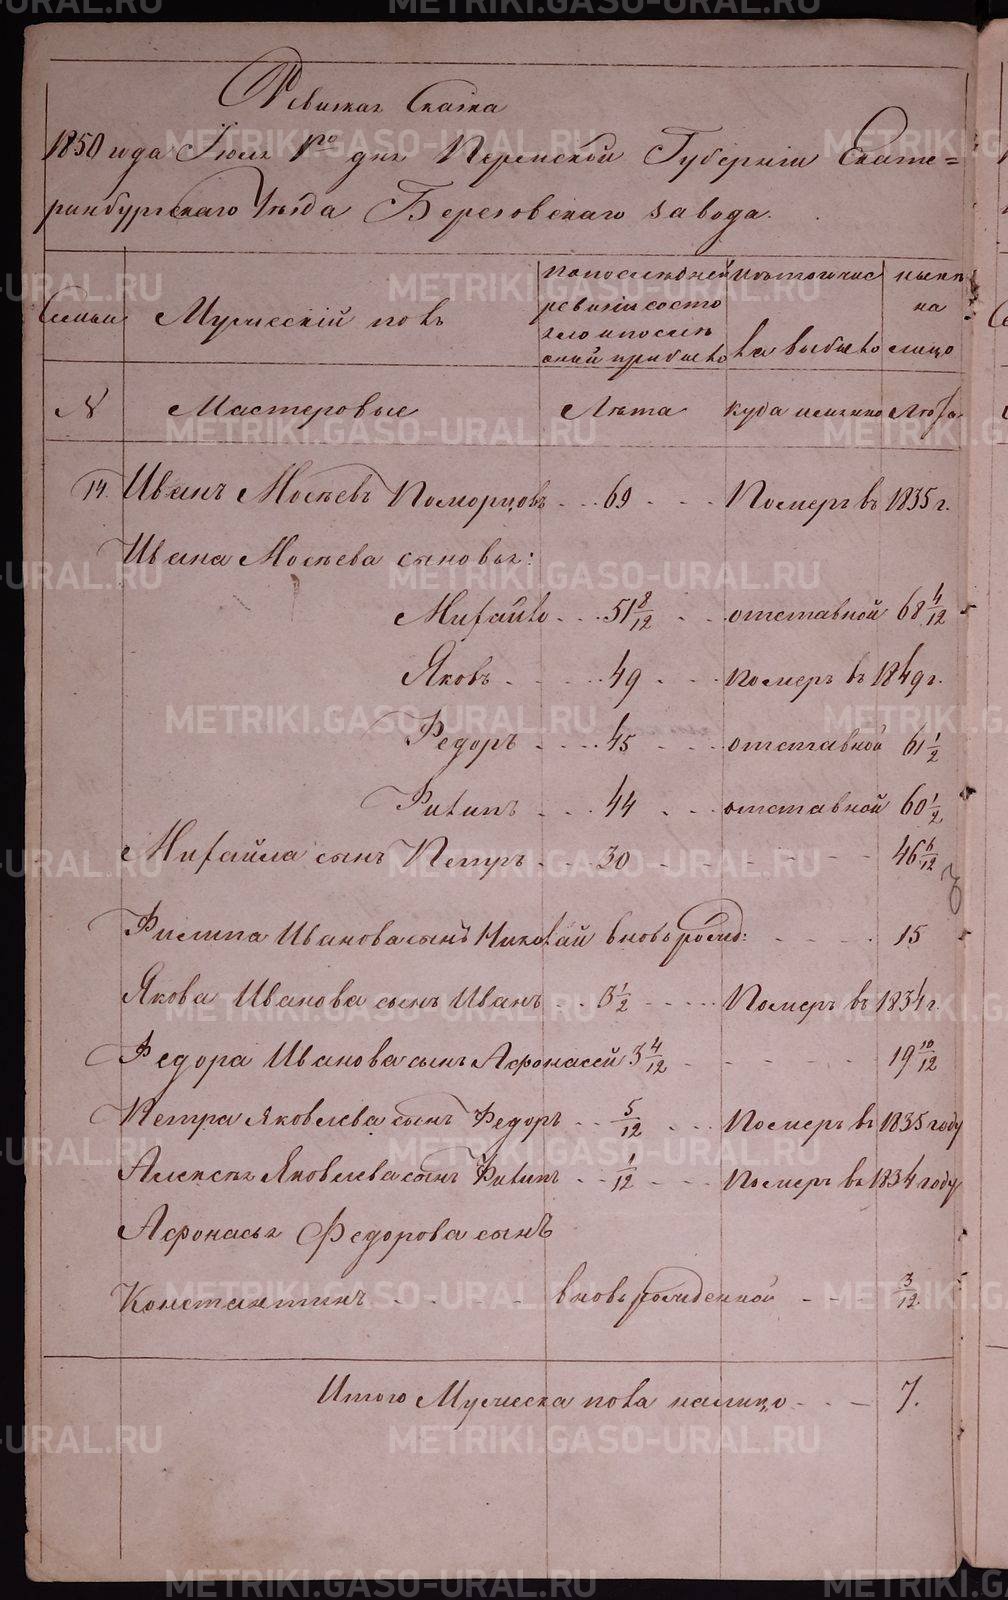 Ревизкая Сказка
1850 года Июля 1го дня Пермской Губернии Екате=
ринбургскаго Уѣзда Березовскаго завода.
Семьи
Мужескiй полъ
по последней
ревизiи состо
яло и послѣ
оной прибыло
Изъ того числа
выбыло
нынѣ
на
лицо
N Мастеровые Лѣта куда именно Лѣта
14. Иванъ Мосѣевъ Поморцовъ 69 Померъ въ 1835 г.
Ивана Мосѣева сыновья:
Михайло 51 8/12 отставной 68 4/12
Яковъ 49 померъ въ 1849 г.
Федоръ 45 отставной 61 1/2
Филипъ 44 отставной 60 1/2
Михайла сынъ Петръ 30 46 6/12
Филипа Иванова сынъ Николай вновь рожд: 15
Якова Иванова сынъ Иванъ 3 1/2 Померъ въ 1834 г.
Федора Иванова сынъ Афонасей 3 4/12 19 10/12
Петра Яковлева сынъ Федоръ 5/12 Померъ въ 1835 году
Алексѣя Яковлева сынъ Филипъ 1/12 Померъ въ 1834 году
Афонасья Федорова сынъ
Константинъ вновь рожденной 3/12
Итого Мужеска пола налицо 7.
METRIKI.GASO-URAL.RU